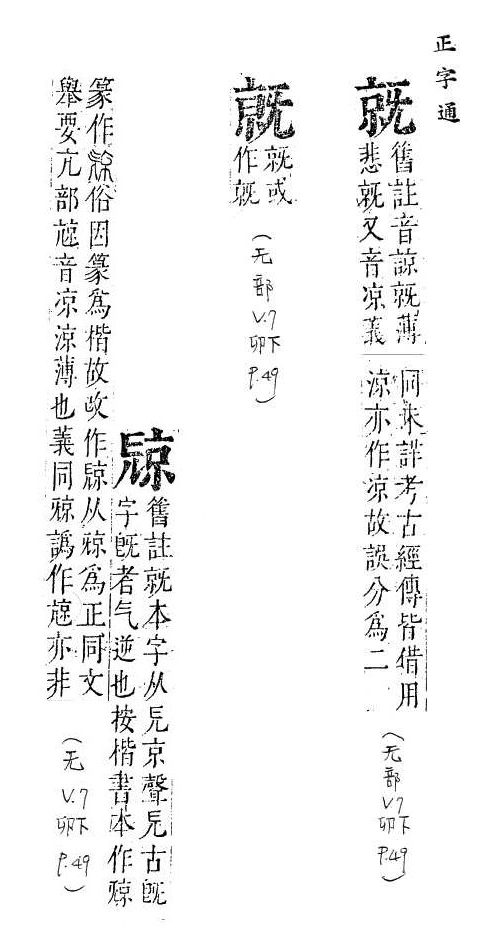 正字通
舊註音諒薄
悲又音凉義
同未詳考古經傳皆借用
涼亦作涼故誤分為二
（无部 V.7 卯下 P.49）
或
作
（无部 V.7 卯下 P.49）
舊註本字从旡京聲旡古旣
字旣者气逆也按楷書本作
篆作俗因篆爲楷故改作从爲正同文
舉要亢部音凉涼薄也義同譌作亦非
（无 V.7 卯下 P.49）